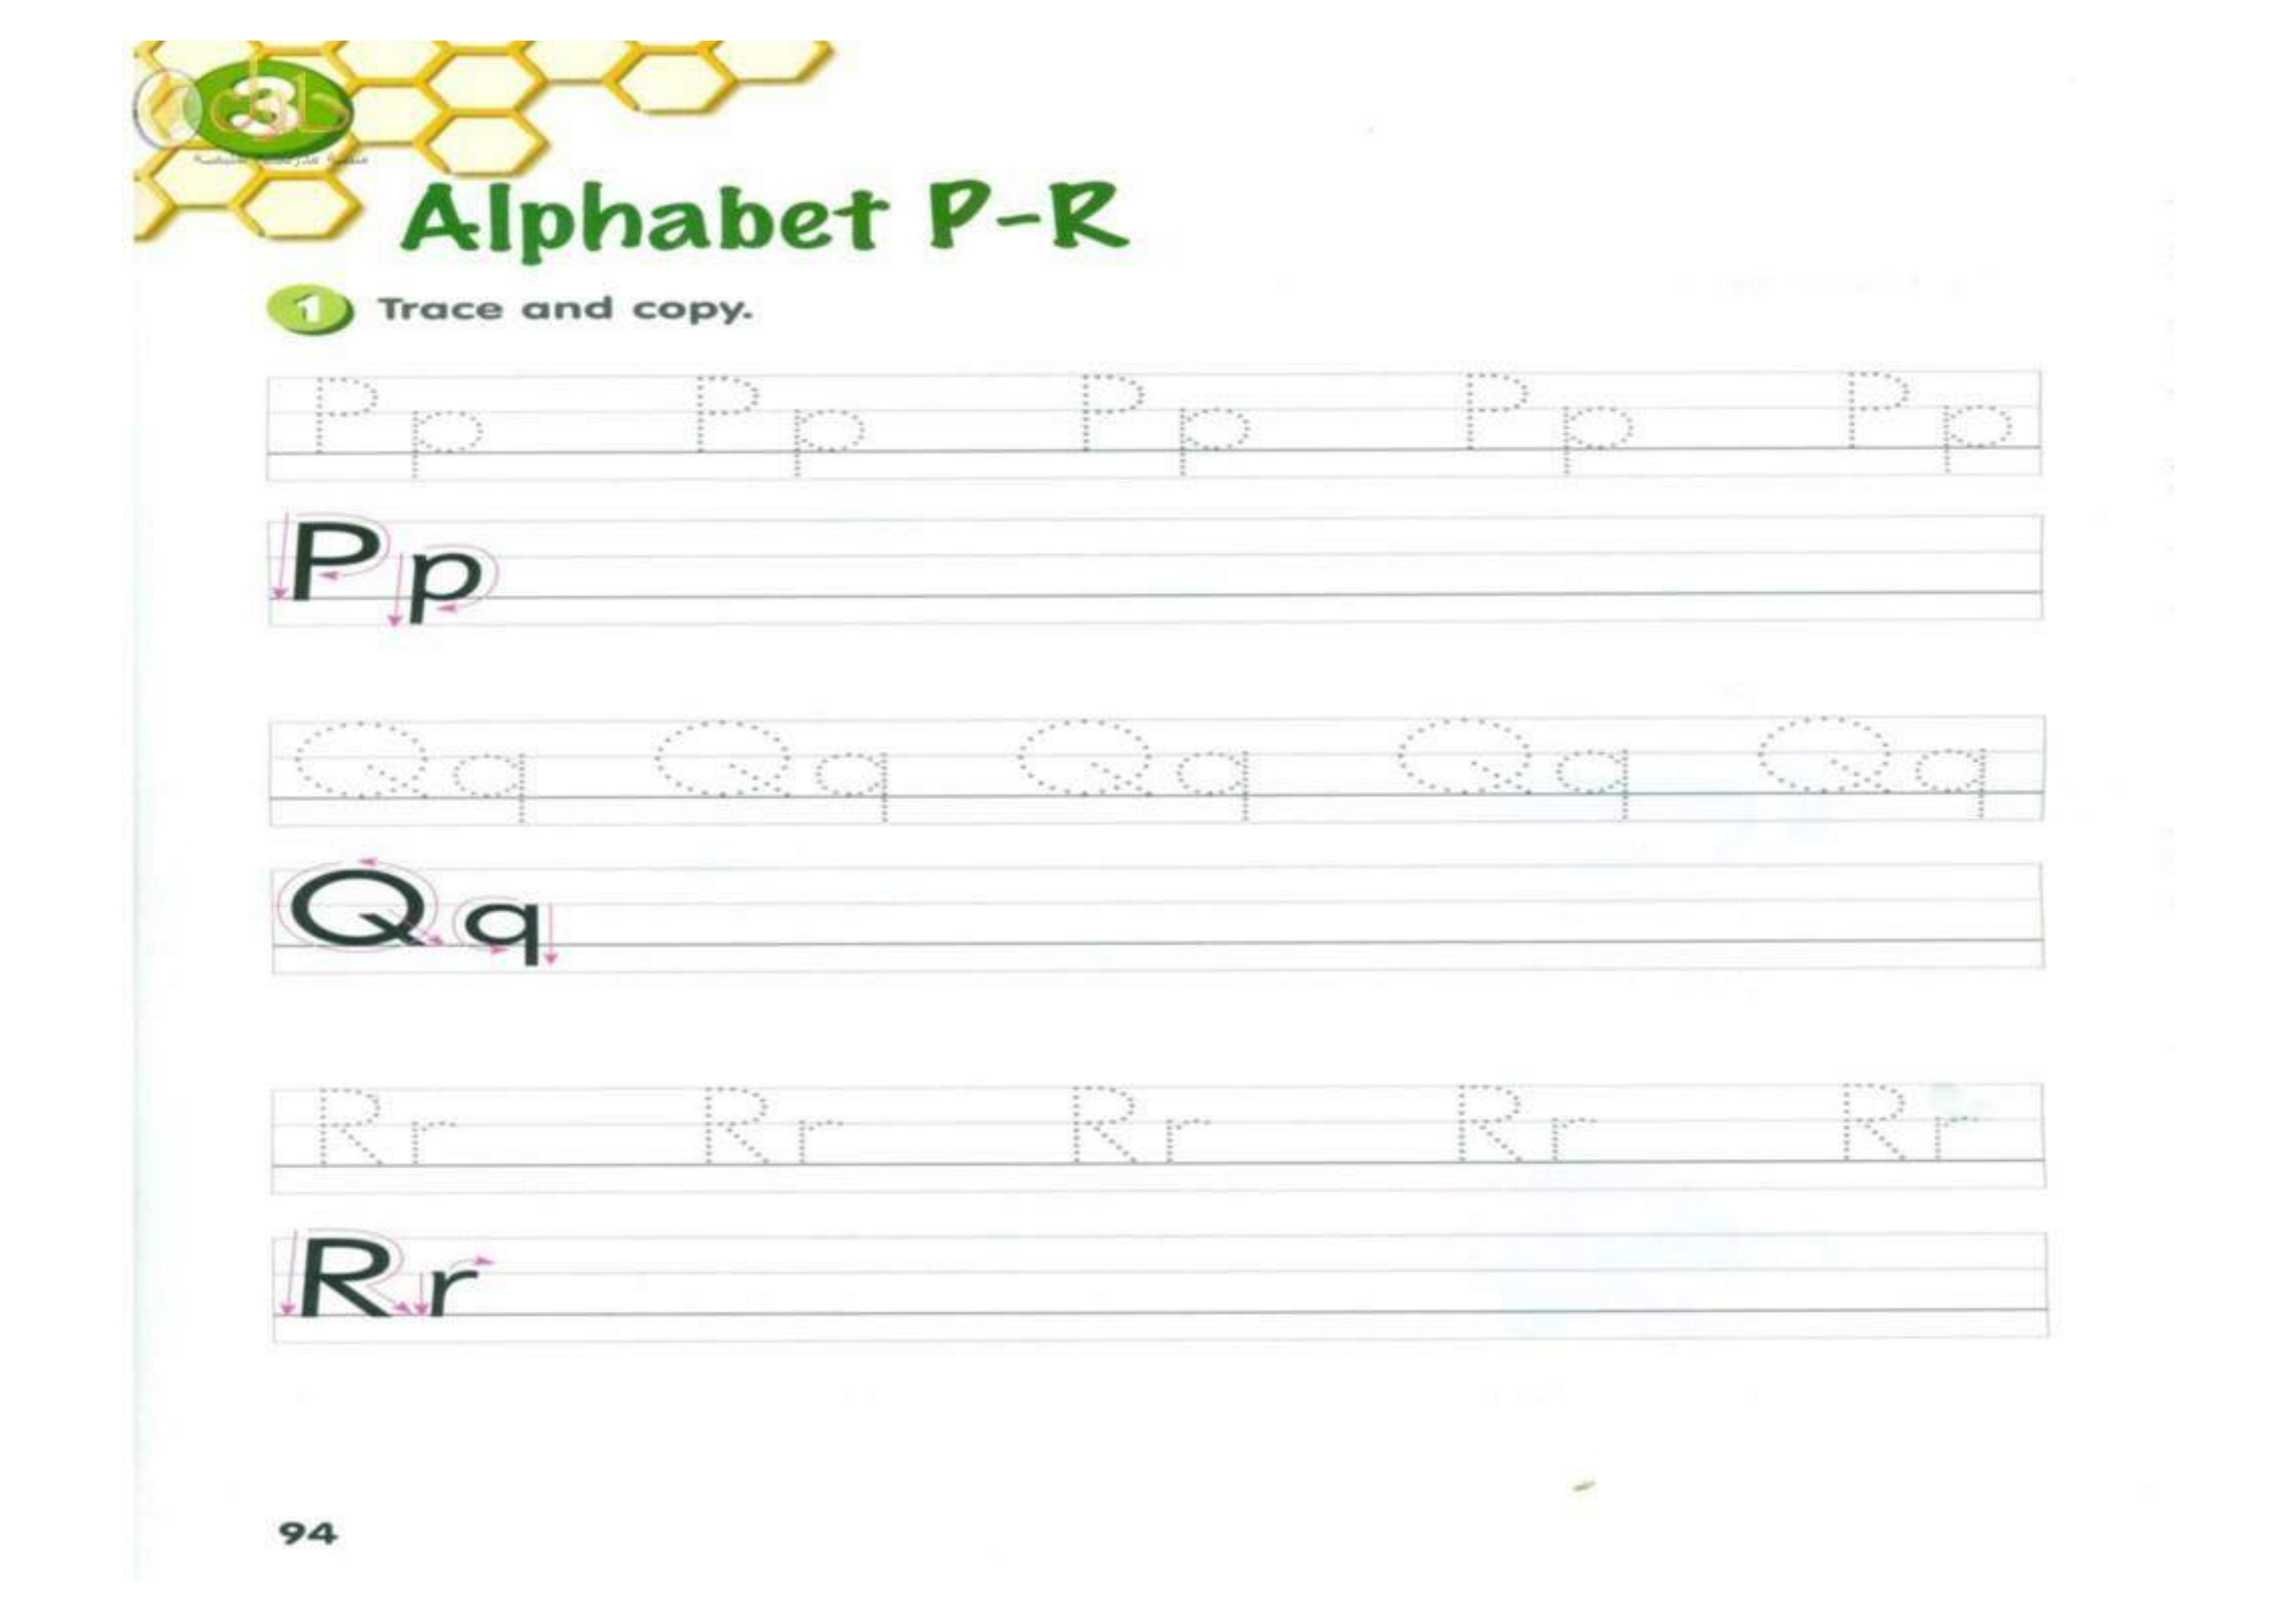 3
Alphabet P-R
1 Trace and copy.
Pp Pp Pp Pp Pp
Pp
Qq Qq Qq Qq Qq
Qq
Rr Rr Rr Rr Rr
Rr
94